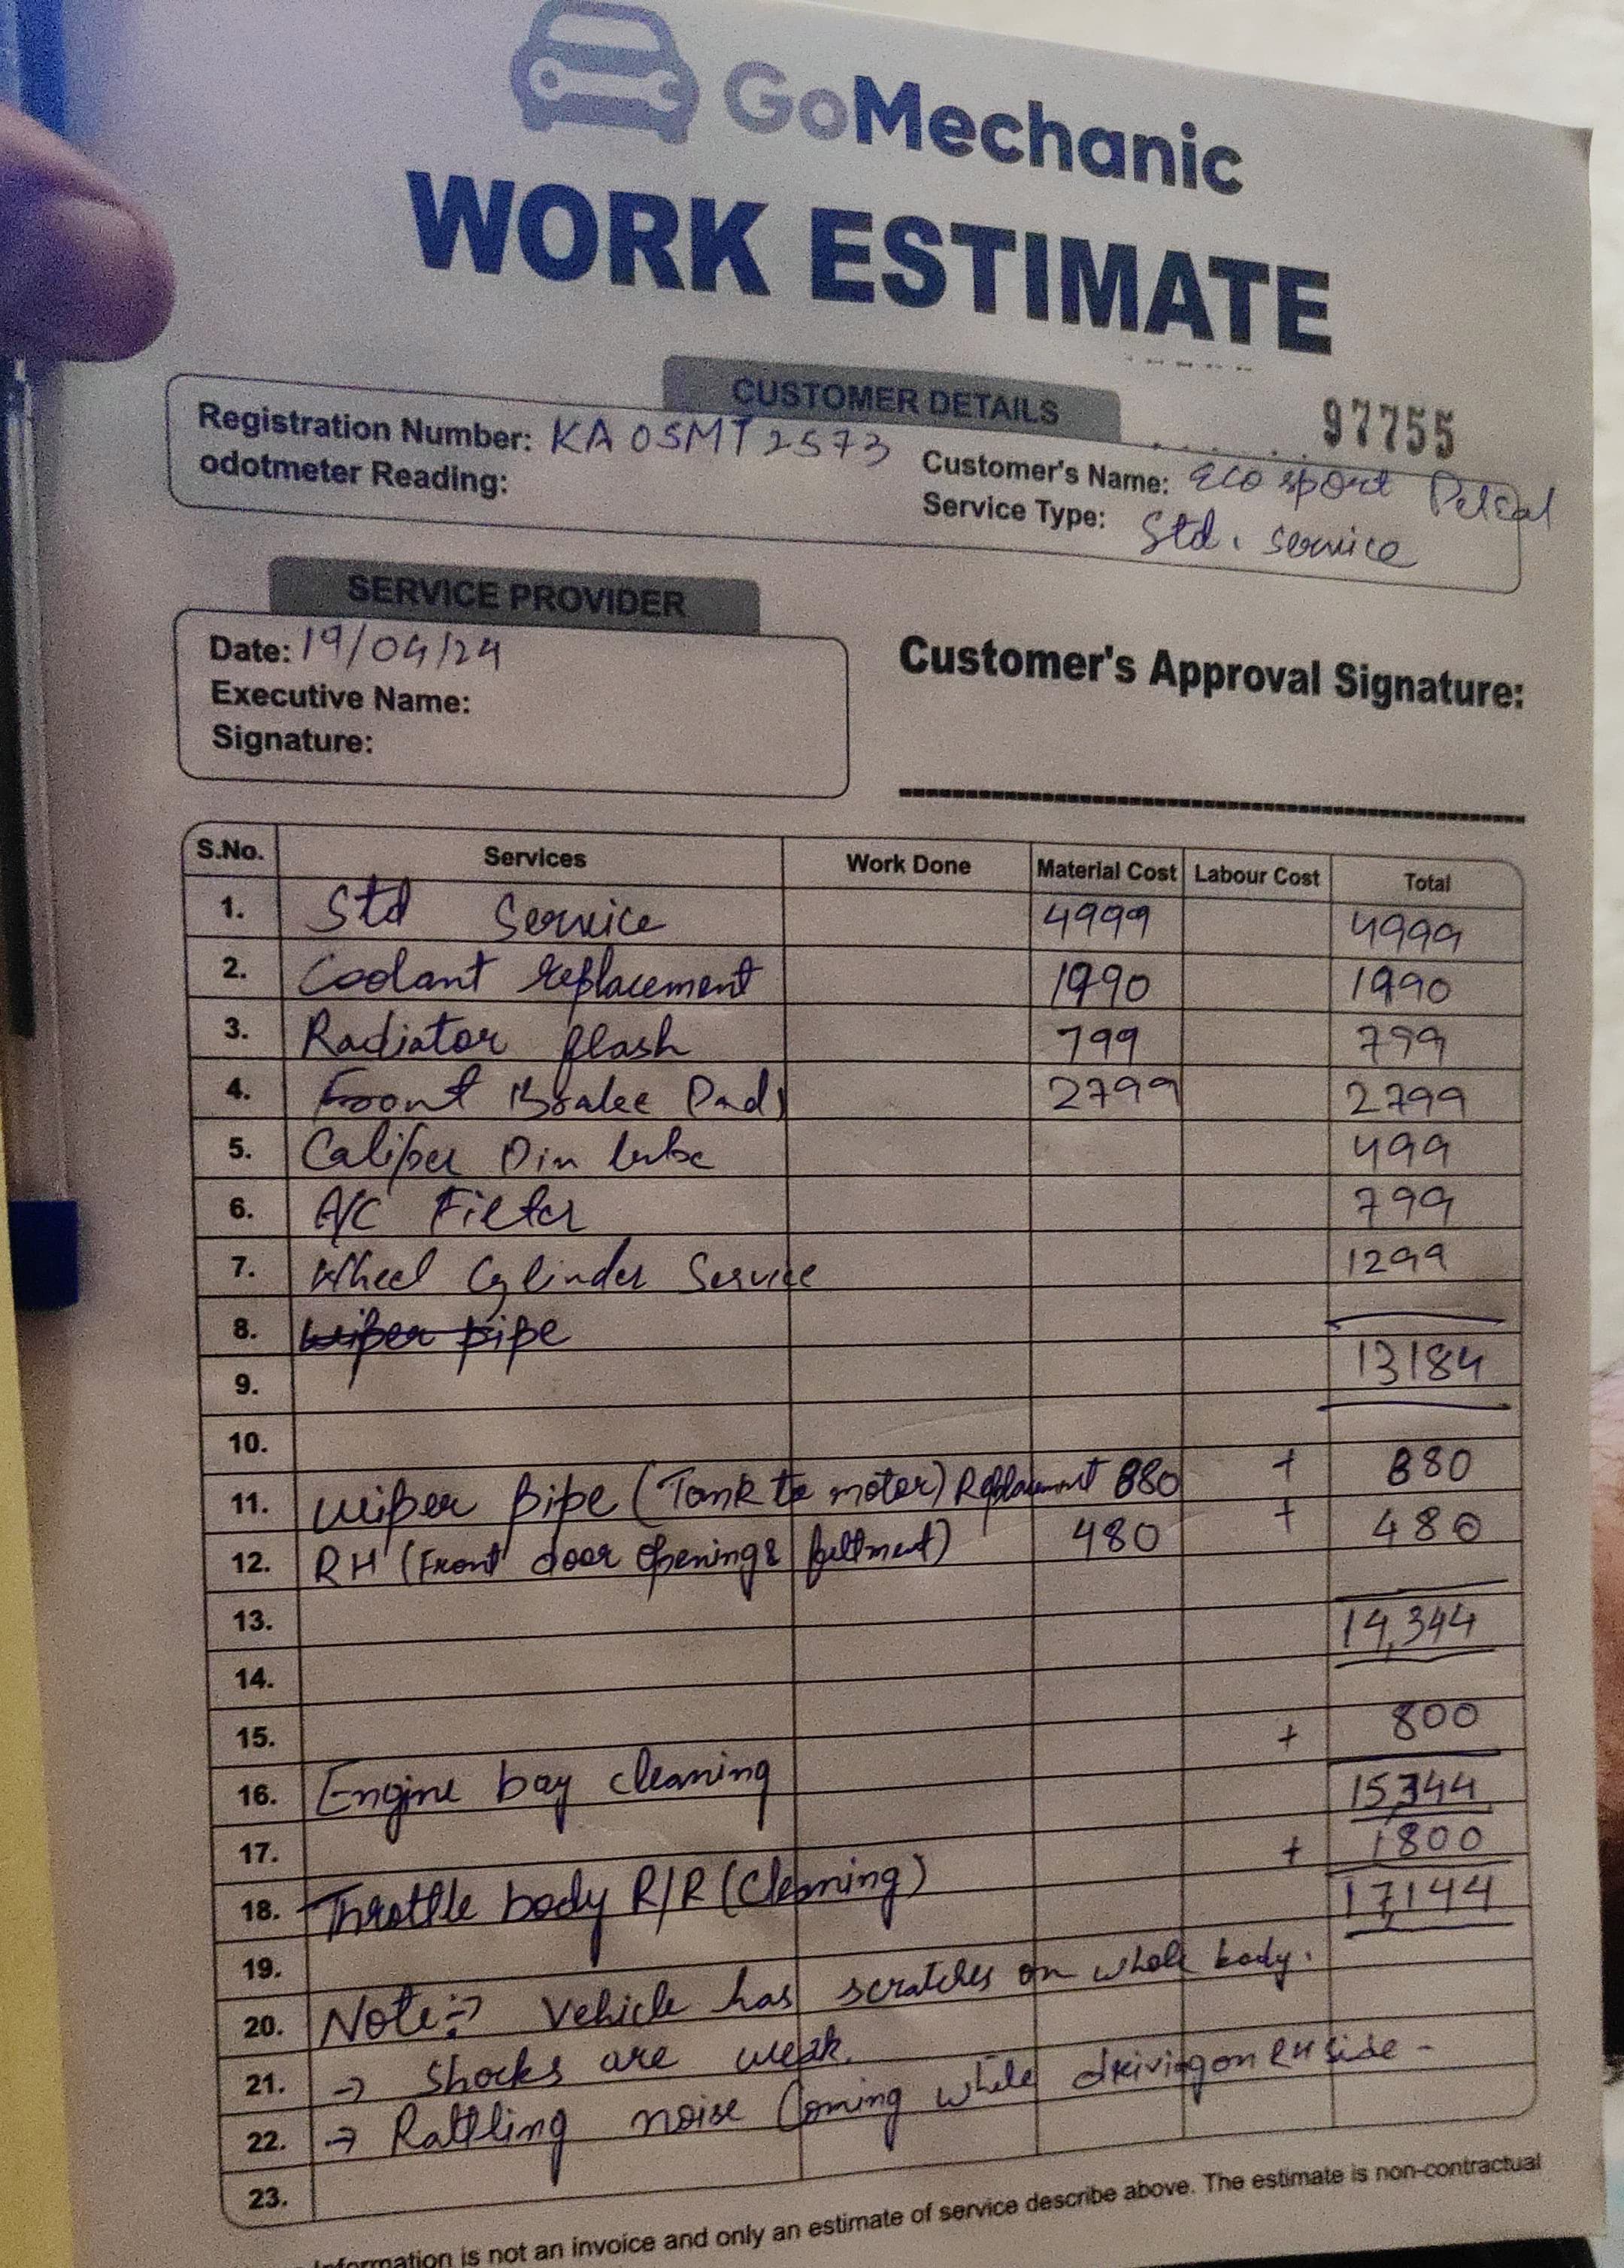 GoMechanic
WORK ESTIMATE
CUSTOMER DETAILS
97755
Registration Number: KA 05MT 2573
Customer's Name: Eco sport
odotmeter Reading:
Service Type: Std. Service
SERVICE PROVIDER
Date: 19/04/24
Executive Name:
Signature:
Customer's Approval Signature:
S.No. Services Work Done Material Cost Labour Cost Total
1. Std Service 4999 4999
2. Coolant replacement 1990 1990
3. Radiator flash 799 799
4. Front Brake Pad 2799 2799
5. Caliper Pin lube 499
6. A/C Filter 799
7. Wheel Cylinder Service 1299
8. wiper pipe
9. 13184
10.
11. wiper pipe (Tank to motor) Replacement 880 + 880
12. RH (Front door opening & ) 480 + 480
13. 14,344
14.
15. + 800
16. Engine bay cleaning 15,344
17. + 1800
18. Throttle body R/R (Cleaning) 17,144
19.
20. Note:→ Vehicle has scratches on whole body.
21. → Shocks are weak.
22. → Rattling noise Coming while driving on RH side -
23.
information is not an invoice and only an estimate of service describe above. The estimate is non-contractual